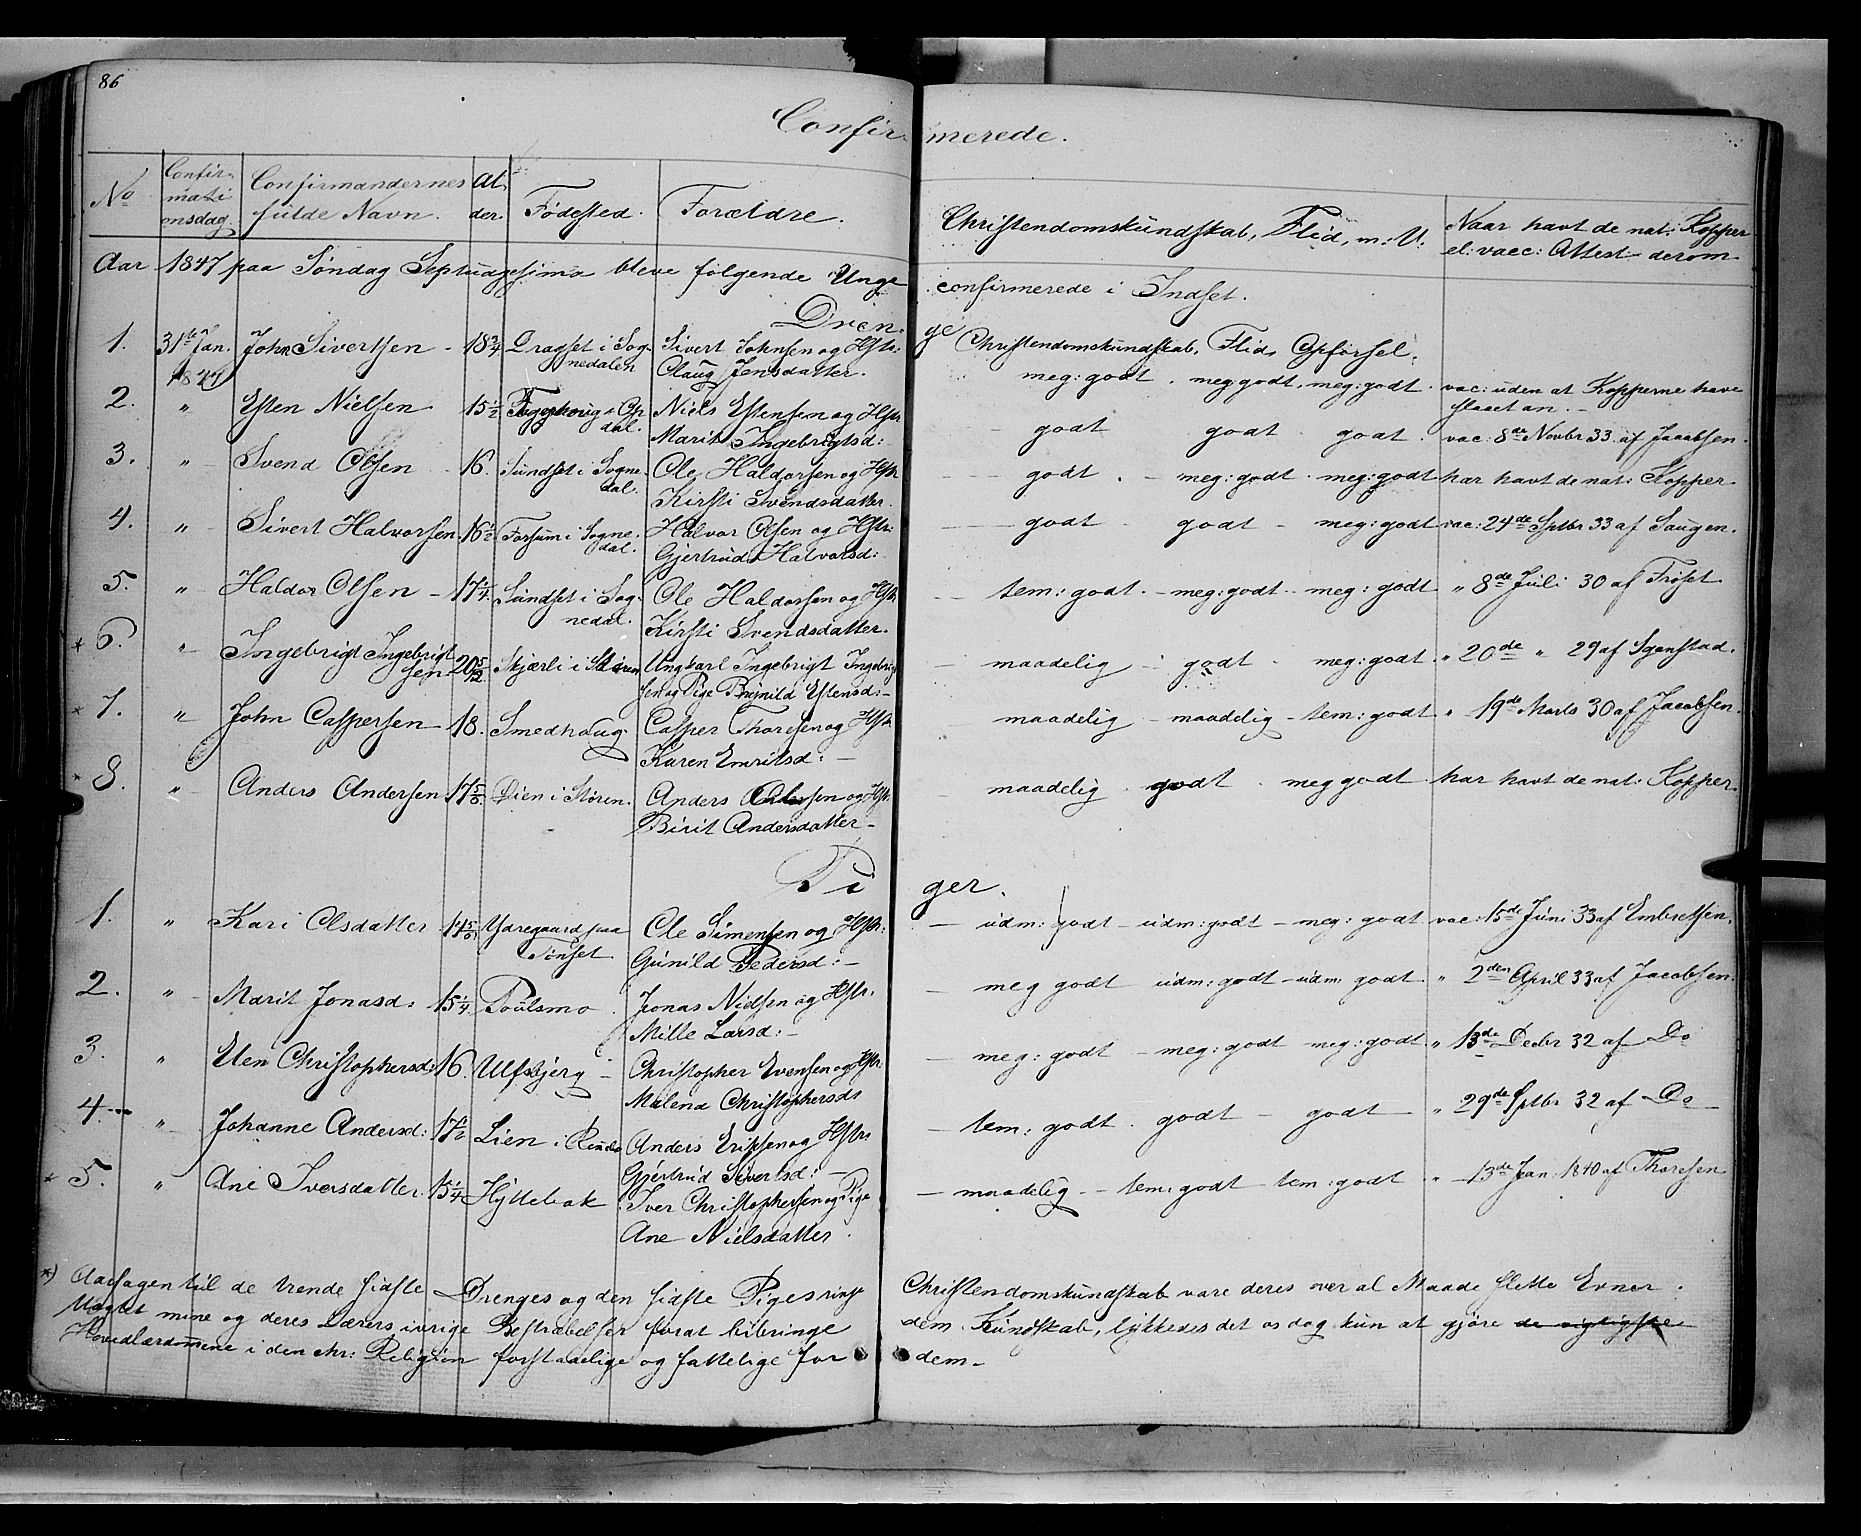 86
Confirmerede.
No Confirmationsdag Confirmandernes fulde Navn. Alder. Fødested. Forældre. Christendomskundskab, Flid, m: V. Naar havt de nat: Kopper el: vacc: Attest derom
Aar 1847 paa Søndag Septuagesima bleve følgende Unge confirmerede i Indset.
Drenge
Christendomskundskab, Flid, Opførsel.
1. 31te Jan. 1847 John Sivertsen - 18 3/4 Dragset i Sognedalen Sivert Johnsen og Hstr: Jensdatter. meg: godt. meg: godt. meg: godt. vac: uden at Kopperne have slaaet an. -
2. " Esten Nielsen 15 1/2 dal. Niels Estensen og Hstr Marit Ingebrigtsd: - godt godt godt. vac: 8de Novbr 33. af Jacobsen.
3. " Svend Olsen 16. Sundset i Sognedal. Ole Haldorsen og Hstr Kirsti Svendsdatter. - godt. - meg: godt. meg: godt har havt de nat: Kopper
4. " Sivert Halvorsen. 16 1/2 Forsum i Sognedal. Halvor Olsen og Hstr: Gjertrud Halvorsd: - godt. godt - meg: godt vac: 24de Sptbr 33 af Saugen.
5. " Haldor Olsen - 17 1/4. Sundset i Sognedal. Ole Haldorsen og Hstr Kirsti Svendsdatter. - tem: godt. - meg: godt - meg: godt " 8de Juli 30 af Frøset
* 6. " Ingebrigt Ingebrigtsen 20 Skjærli i Støren Ungkarl Ingebrigt Ingebrigtsen og Pige Estensd: - - maadelig - godt. meg: godt. " 20de " 29 af
* 7. " John Caspersen - 18. Smedhaug Casper Thoresen og Hstr Karen - maadelig - maadelig - tem: godt " 19de Marts 30 af Jacobsen.
* 8. " Anders Andersen 17 5/6. i Støren. Anders og Hstr. Birit Andersdatter - - maadelig. godt. meg godt har havt de nat: Kopper.
Piger.
1. " Kari Olsdatter. 14 5/6. Ydregaard paa Tønset Ole Simensen og Hstr: Gunild Pedersd: - - udm: godt - udm: godt - meg: godt vac: 15de Juni 33 af Embretsen.
2. " Marit Jonasd: 15 1/4. Poulsmo. Jonas Nielsen og Hstr. Mille Larsd: - - meg godt udm: godt - udm: godt. " 2den April 33 af Jacobsen.
3. " Elen Christophersd: 16. Ulfsbjerg - Christopher Evensen og Hstr. Malena Christophersd: - meg: godt - meg: godt meg: godt " 13de Decbr 32 af Do
4. " Johanne Andersd: 17 1/2 Lien i Anders Eriksen og Hstr: Gjertrud Sivertsd: - - tem: godt. godt - godt " 29de Sptbr 32 af Do
* 5. " Ane Iversdatter. 15 1/4 Hyttebak Iver Christophersen og Pige Ane Nielsdatter. - maadelig - tem: godt - tem: godt " 13de Jan: 1840 af Thoresen
*) Aarsagen til de trende sidste Drenges og den sidste Piges ringe Christendomskundskab vare deres over al Maade slette Evner.
Uagtet mine og deres Lærers ivrige Bestræbelser forat bibringe dem Kundskab, lykkedes det os dog kun at gjøre de vigtigste
Hovedlærdomme i den chr: Religion forstaaelige og fattelige for dem -